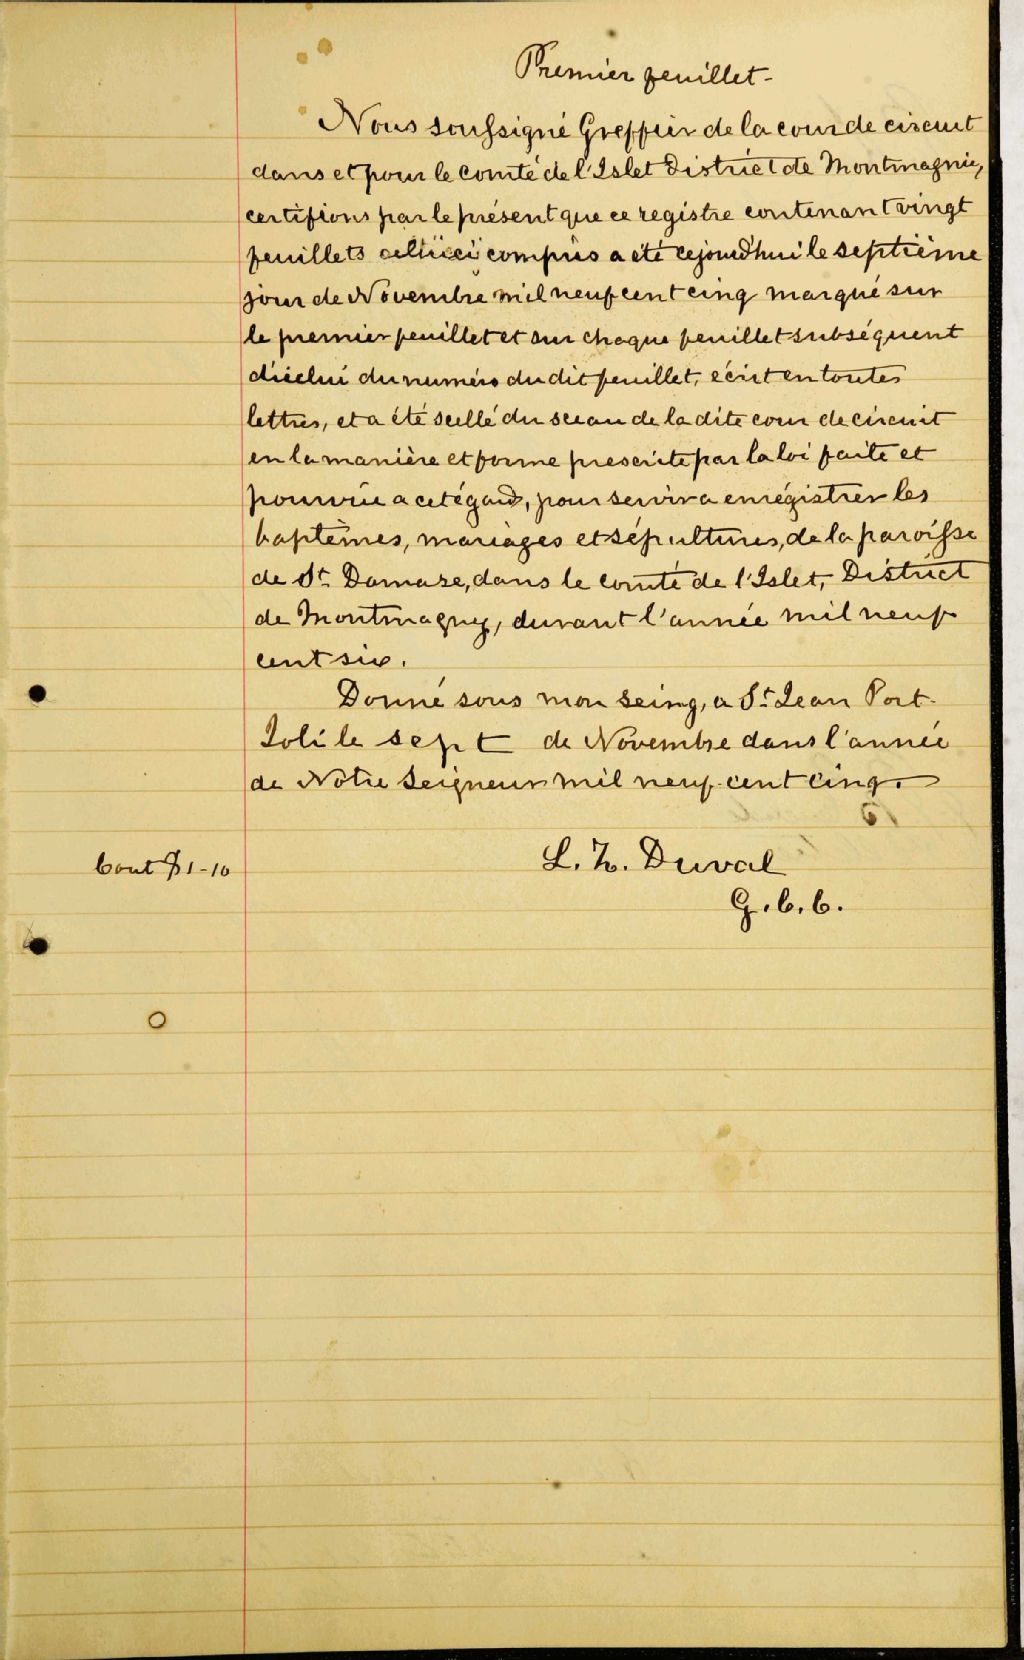 Premier feuillet -
Nous soussigné Greffier de la cour de circuit
dans et pour le comté de l'Islet District de Montmagnie,
certifions par le présent que ce registre contenant vingt
feuillets celui ci compris a été cejourd'hui le septième
jour de Novembre mil neuf cent cinq marqué sur
le premier feuillet et sur chaque feuillet subséquent
d'icelui du numéro du dit feuillet, écrit en toutes
lettres, et a été scellé du sceau de la dite cour de circuit
en la manière et forme prescrite par la loi faite et
pourvue a cet égard, pour servir a enrégistrer les
baptêmes, mariages et sépultures, de la paroisse
de St. Damase, dans le comté de l'Islet, District
de Montmagny, durant l'année mil neuf
cent six.
Donné sous mon seing, a St. Jean Port-
Joli le sept de Novembre dans l'année
de Notre Seigneur mil neuf cent cinq.
Cout $1-10
L. Z. Duval
G. C. C.